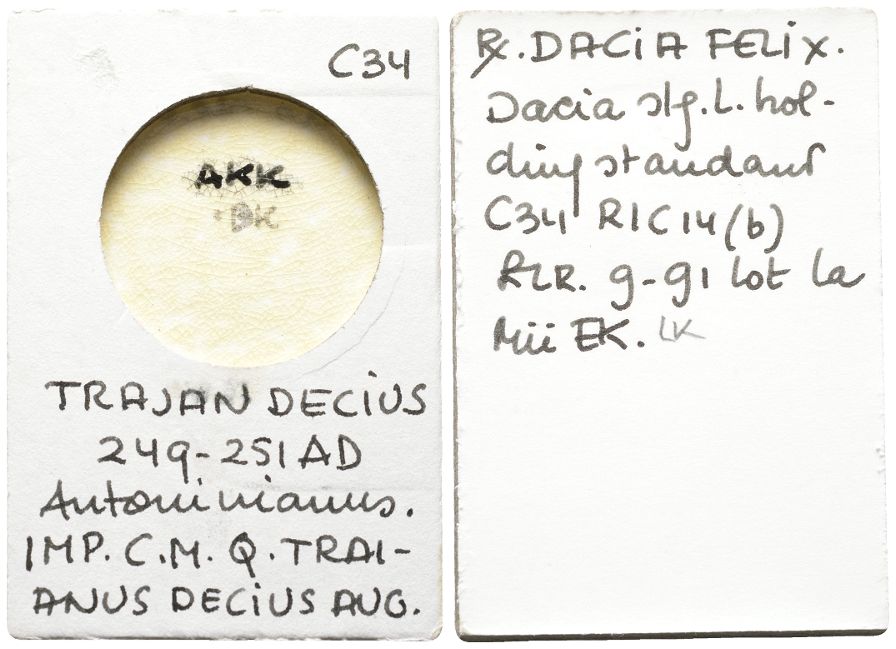 C34
AKK
DK
TRAJAN DECIUS
249-251 AD
Antoninianus.
IMP. C.M. Q. TRAI-
ANUS DECIUS AUG.
RX. DACIA FELIX.
Dacia stg. L. hol-
ding standard
C34 RIC14(b)
RLR. g-91 lot la
EK. LK